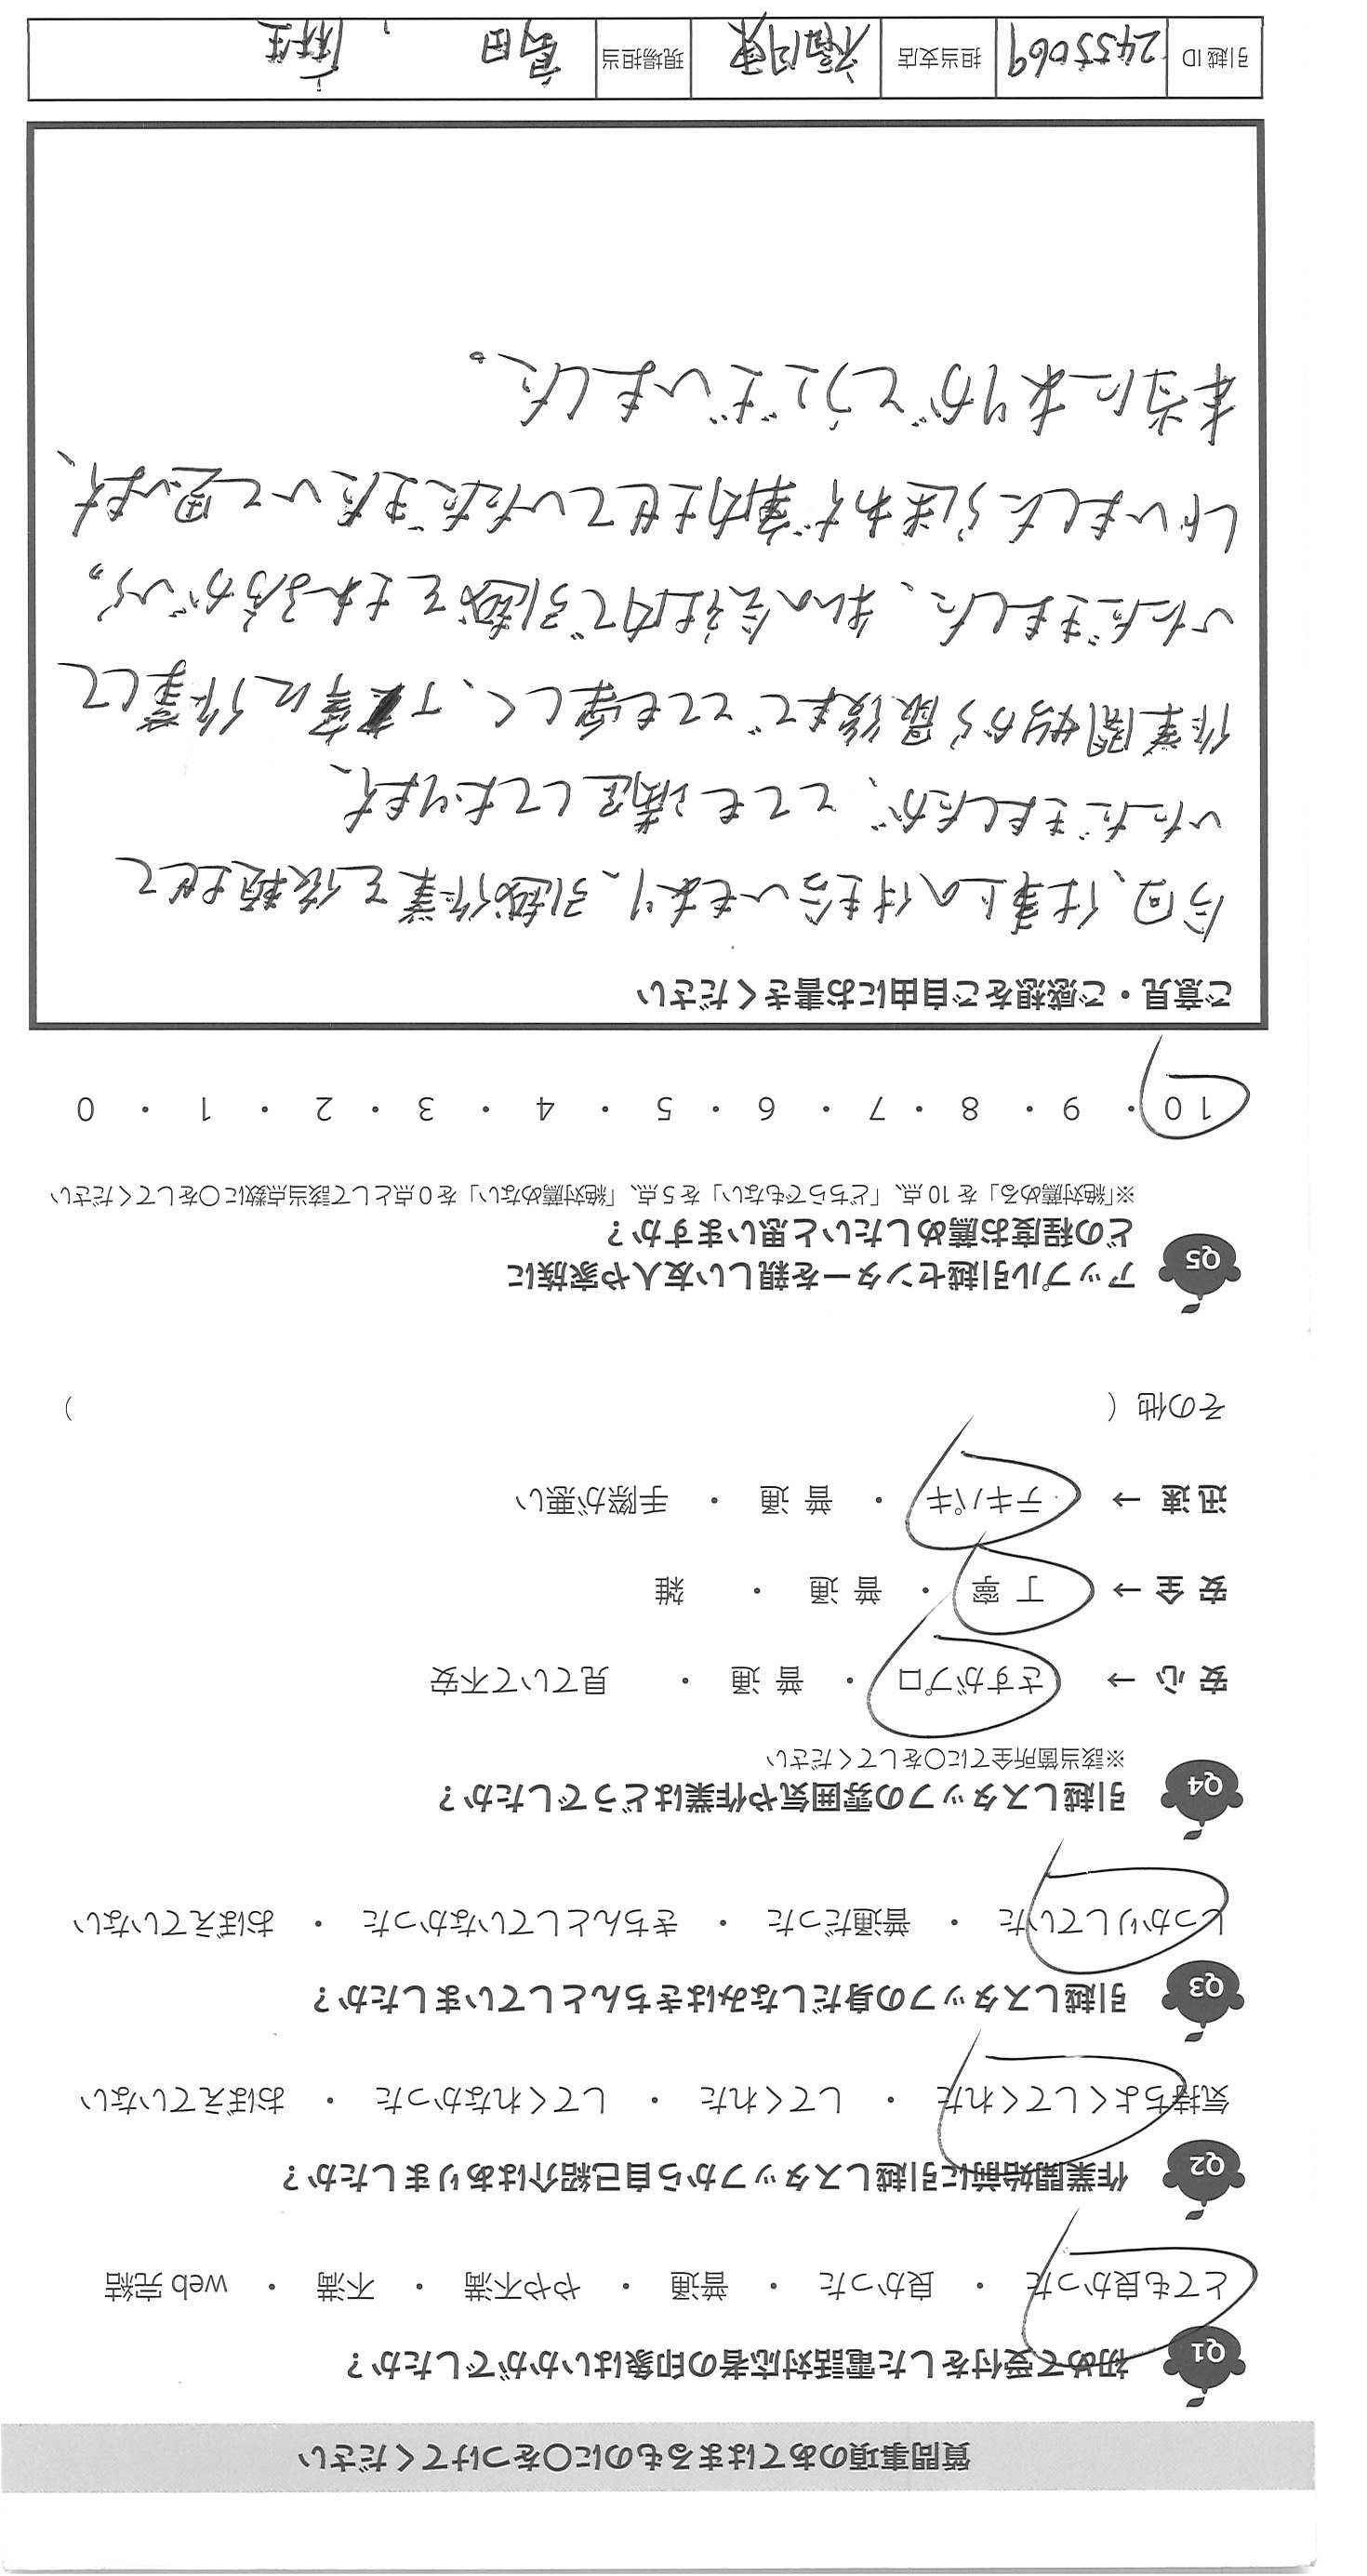 質問事項のあてはまるものに〇をつけてください
Q1 初めて受付をした電話対応者の印象はいかがでしたか？
とても良かった ・ 良かった ・ 普通 ・ やや不満 ・ 不満 ・ web 完結
Q2 作業開始前に引越しスタッフから自己紹介はありましたか？
気持ちよくしてくれた ・ してくれた ・ してくれなかった ・ おぼえていない
Q3 引越しスタッフの身だしなみはきちんとしていましたか？
しっかりしていた ・ 普通だった ・ きちんとしていなかった ・ おぼえていない
Q4 引越しスタッフの雰囲気や作業はどうでしたか？
※該当箇所全てに〇をしてください
安心 → さすがプロ ・ 普通 ・ 見ていて不安
安全 → 丁寧 ・ 普通 ・ 雑
迅速 → テキパキ ・ 普通 ・ 手際が悪い
その他（ ）
Q5 アップル引越センターを親しい友人や家族に
どの程度お薦めしたいと思いますか？
※「絶対薦める」を 10 点、「どちらでもない」を 5 点、「絶対薦めない」を 0 点として該当点数に〇をしてください
10 ・ 9 ・ 8 ・ 7 ・ 6 ・ 5 ・ 4 ・ 3 ・ 2 ・ 1 ・ 0
ご意見・ご感想をご自由にお書きください
今回、仕事上の付き合いもあり、引越作業を依頼させて
いただきましたが、とても満足しております、
作業開始から最後まで とても楽しく、丁寧に作業して
いただきました、私の会社内で引越をされる方がいら
しゃいましたら是非ご案内させていただきたいて思います、
本当にありがとうございました。
引越 ID 2455069 担当支店 福岡東 現場担当 髙田、麻生